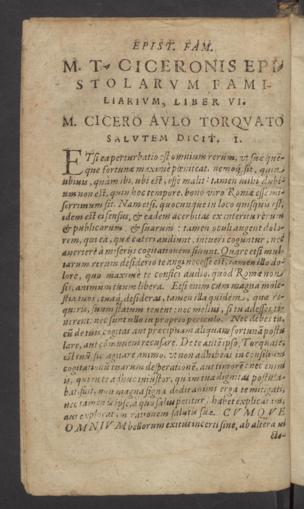 EPIST. FAM.
M. T. CICERONIS EPI
STOLARVM FAMI-
LIARIVM, LIBER VI.
M. CICERO AVLO TORQVATO
SALVTEM DICIT. I.
ETsi ea perturbatio est omnium rerum, ut suæ quen-
que fortunæ maximè pœniteat. nemoq́; sit, quin
ubiuis, quàm ibi, ubi est, esse malit: tamen mihi dubi-
um non est, quin hoc tempore, bono uiro Romæ esse, mi-
serrimum sit. Nam etsi, quocunque in loco quisquis est,
idem est ei sensus, & eadem acerbitas ex interitu rerum
& publicarum, & suarum: tamen oculi augent dolo-
rem, qui ea, quæ cæteri audiunt, intueri coguntur, nec
auertere à miserijs cogitationem sinunt. Quare etsi mul-
tarum rerum desiderio te angi necesse est, tamen illo do-
lore, quo maximè te confici audio, quòd Romæ non
sis, animum tuum libera. Etsi enim cum magna mole-
stia tuos, tuaq́; desideras, tamen illa quidem, quæ re-
quiris, suum statum tenent: nec melius, si tu adesses, te-
nerent: nec sunt ullo in proprio periculo. Nec debes tu,
cùm de tuis cogitas aut præcipuam aliquam fortunã postu-
lare, aut cõmunem recusare. De te autẽ ipso, Torquate,
est tuũ sic agitare animo, ut non adhibeas in consilium
cogitationũ tuarum desperationẽ, aut timorẽ: nec enim
is, qui in te adhuc iniustior, quàm tua dignitas postula-
bat, fuit, non magna signa dedit animi erga te mitigati,
nec tamen is ipse, à quo salus petitur, habet explicatam,
aut exploratam rationem salutis suæ. CVMQVE
OMNIVM bellorum exitus incerti sint, ab altera ui
cto-